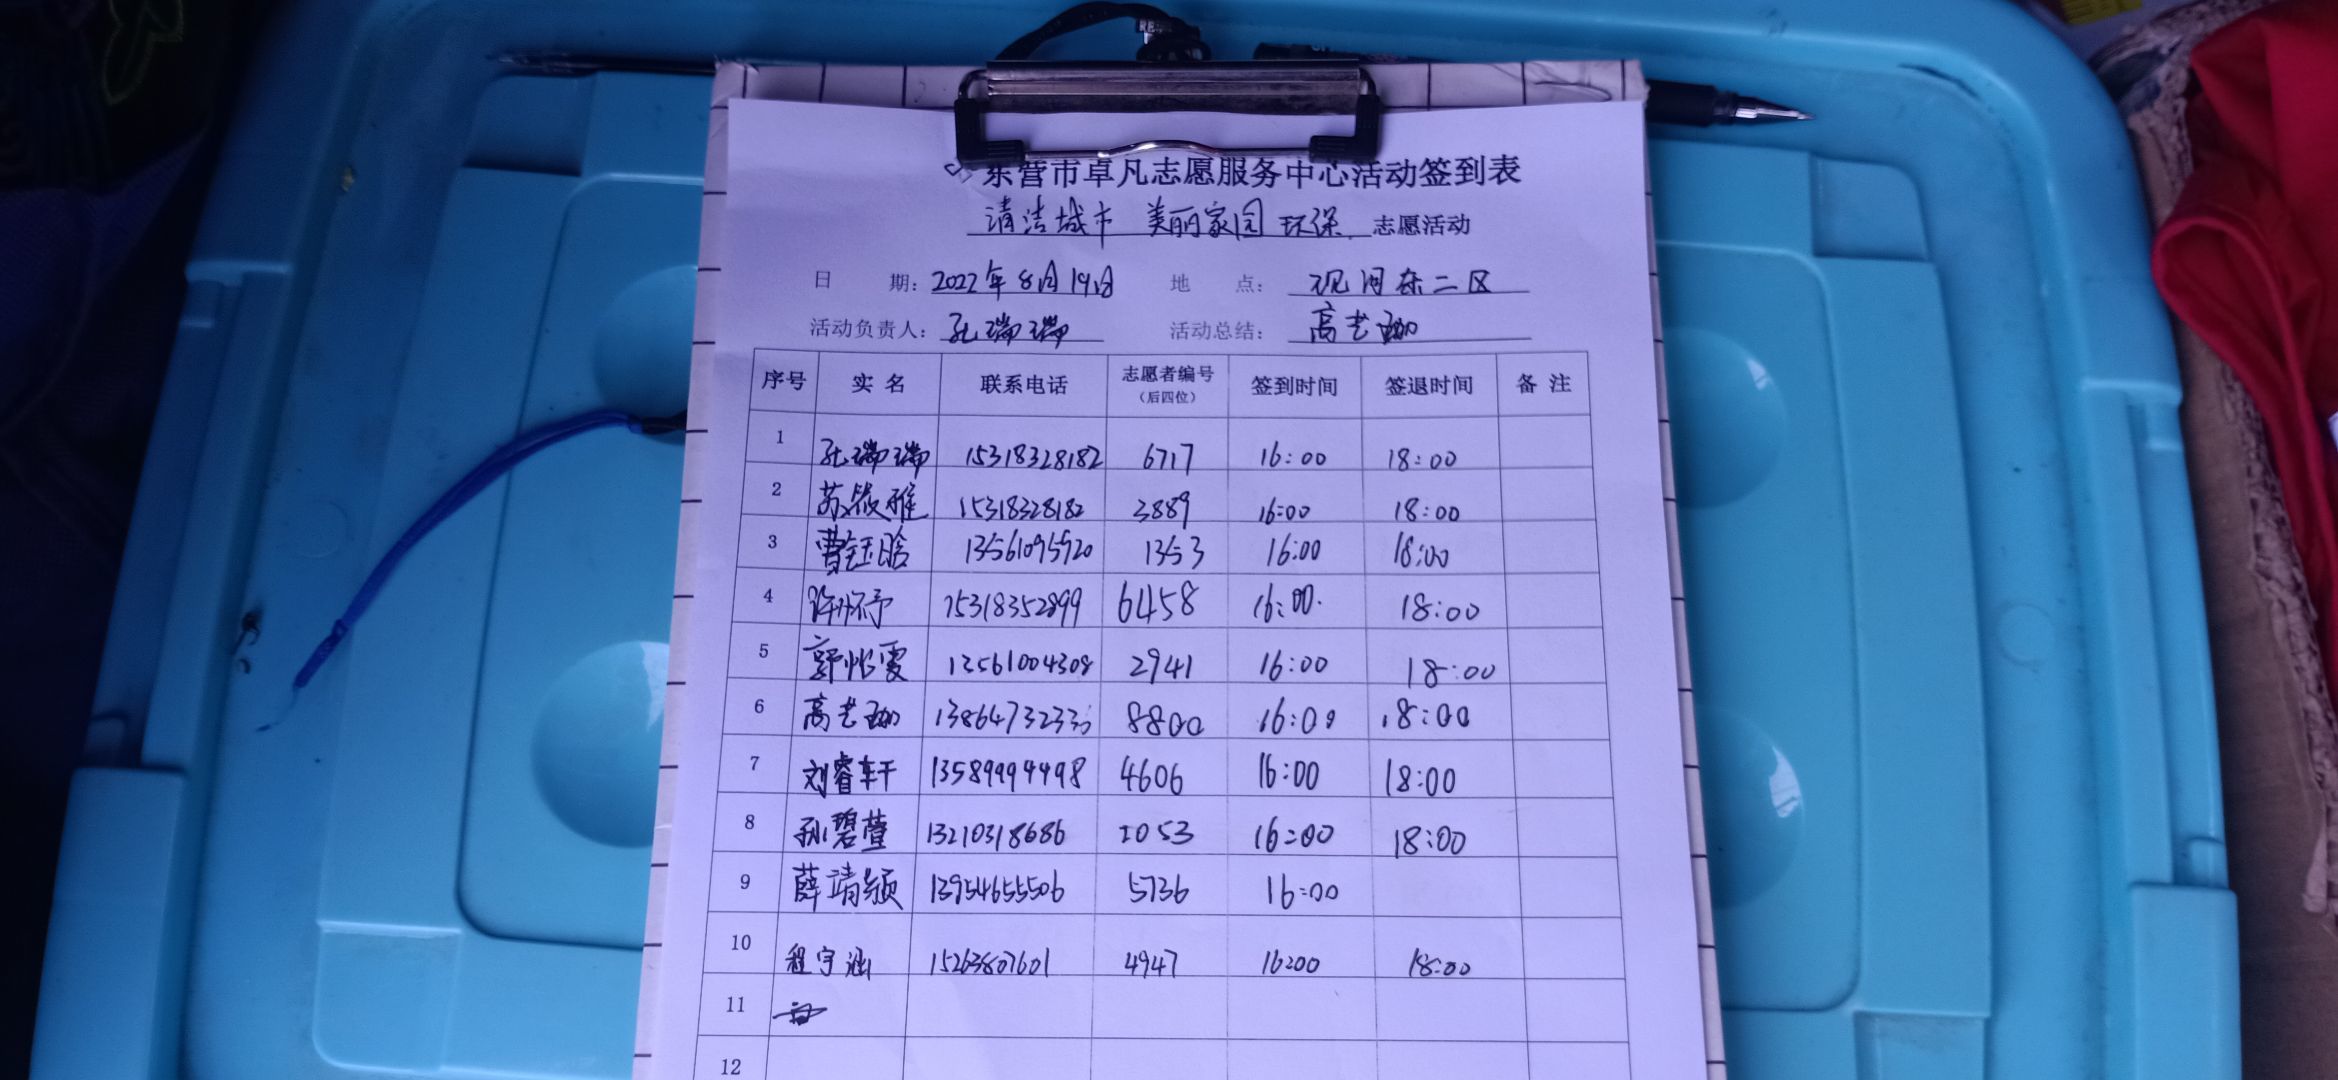 东营市卓凡志愿服务中心活动签到表
清洁城市 美丽家园 环保 志愿活动
日 期: 2022年8月19日 地 点: 观河东二区
活动负责人: 孔瑞瑞 活动总结: 高艺珈
序号 实 名 联系电话 志愿者编号 签到时间 签退时间 备 注
(后四位)
1 孔瑞瑞 15318328182 6717 16:00 18:00
2 苏筱雅 15318328182 3889 16:00 18:00
3 曹钰晗 13561095920 1353 16:00 18:00
4 许怀予 15318352899 6458 16:00 18:00
5 郭怅雯 13561004308 2941 16:00 18:00
6 高艺珈 13864732330 8800 16:00 18:00
7 刘睿轩 13589994498 4606 16:00 18:00
8 孙碧萱 13210318686 1053 16:00 18:00
9 薛靖颖 13954655506 5736 16:00
10 程宇涵 15263807601 4947 16:00 18:00
11
12